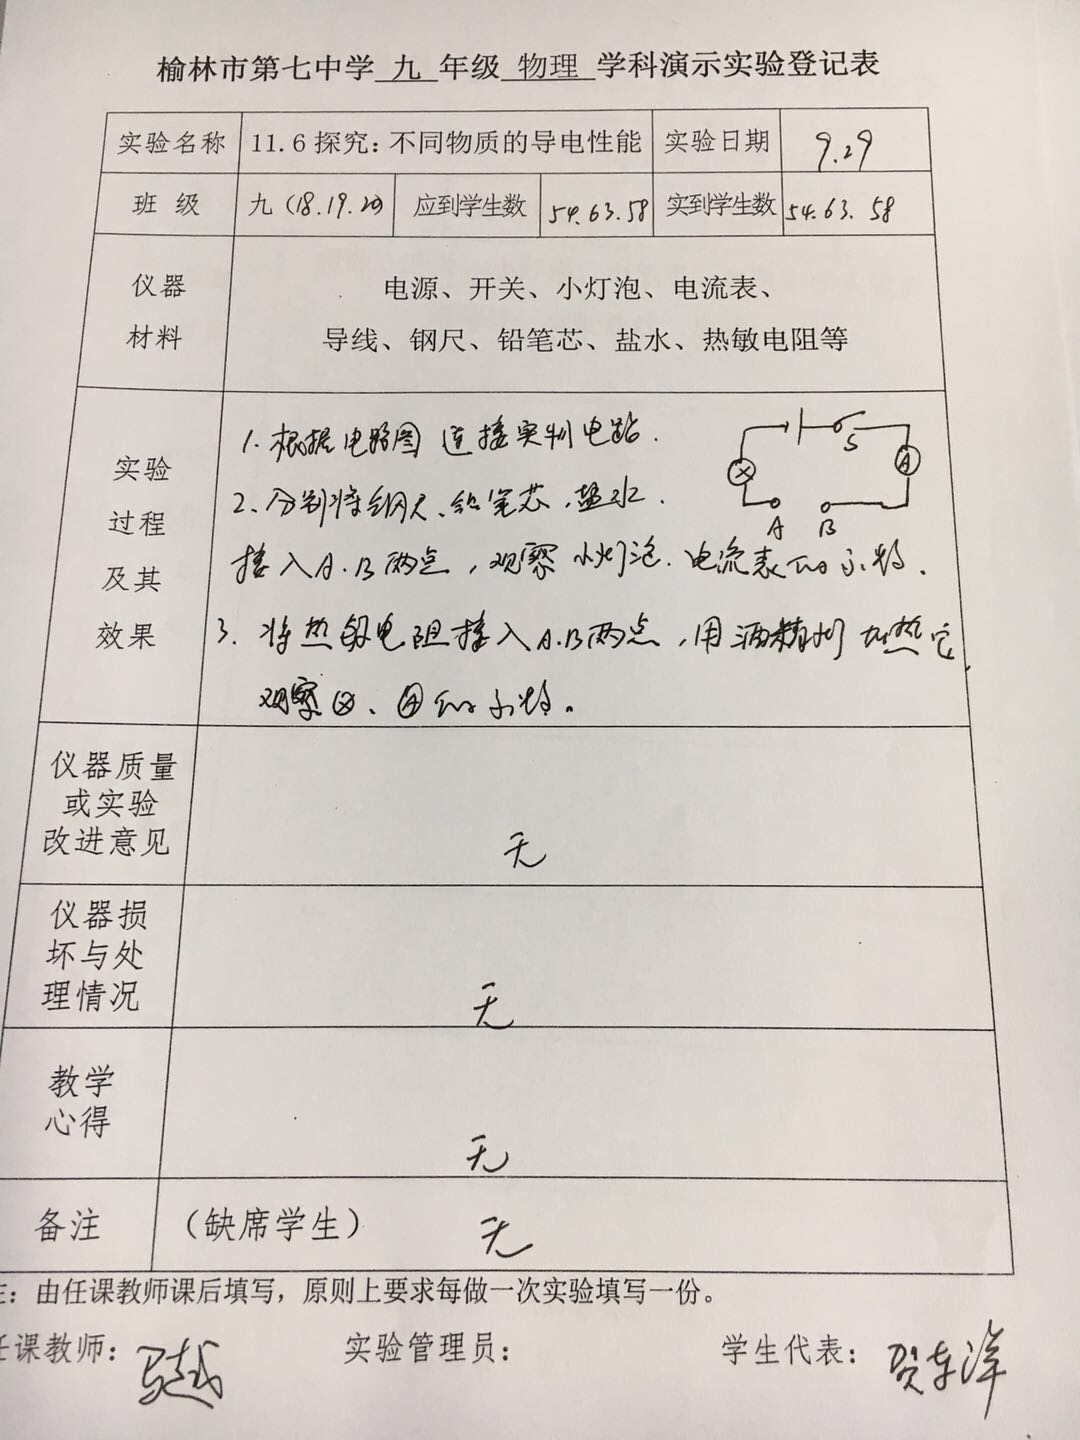 榆林市第七中学 九 年级 物理 学科演示实验登记表
实验名称 11.6 探究：不同物质的导电性能 实验日期 9.29
班 级 九（18.19.20） 应到学生数 54.63.58 实到学生数 54.63.58
仪器 电源、开关、小灯泡、电流表、
材料 导线、钢尺、铅笔芯、盐水、热敏电阻等
实验
过程
及其
效果
1. 根据电路图 连接实物电路.
2、分别将钢尺、铅笔芯、盐水.
接入A.B两点，观察 小灯泡.电流表的示数.
3. 将热敏电阻接入A.B两点，用酒精灯加热它,
观察⊗、Ⓐ的示数。
S
A
A B
仪器质量
或实验
改进意见
无
仪器损
坏与处
理情况
无
教学
心得
无
备注 （缺席学生） 无
注：由任课教师课后填写，原则上要求每做一次实验填写一份。
任课教师：马越 实验管理员： 学生代表：贺东洋